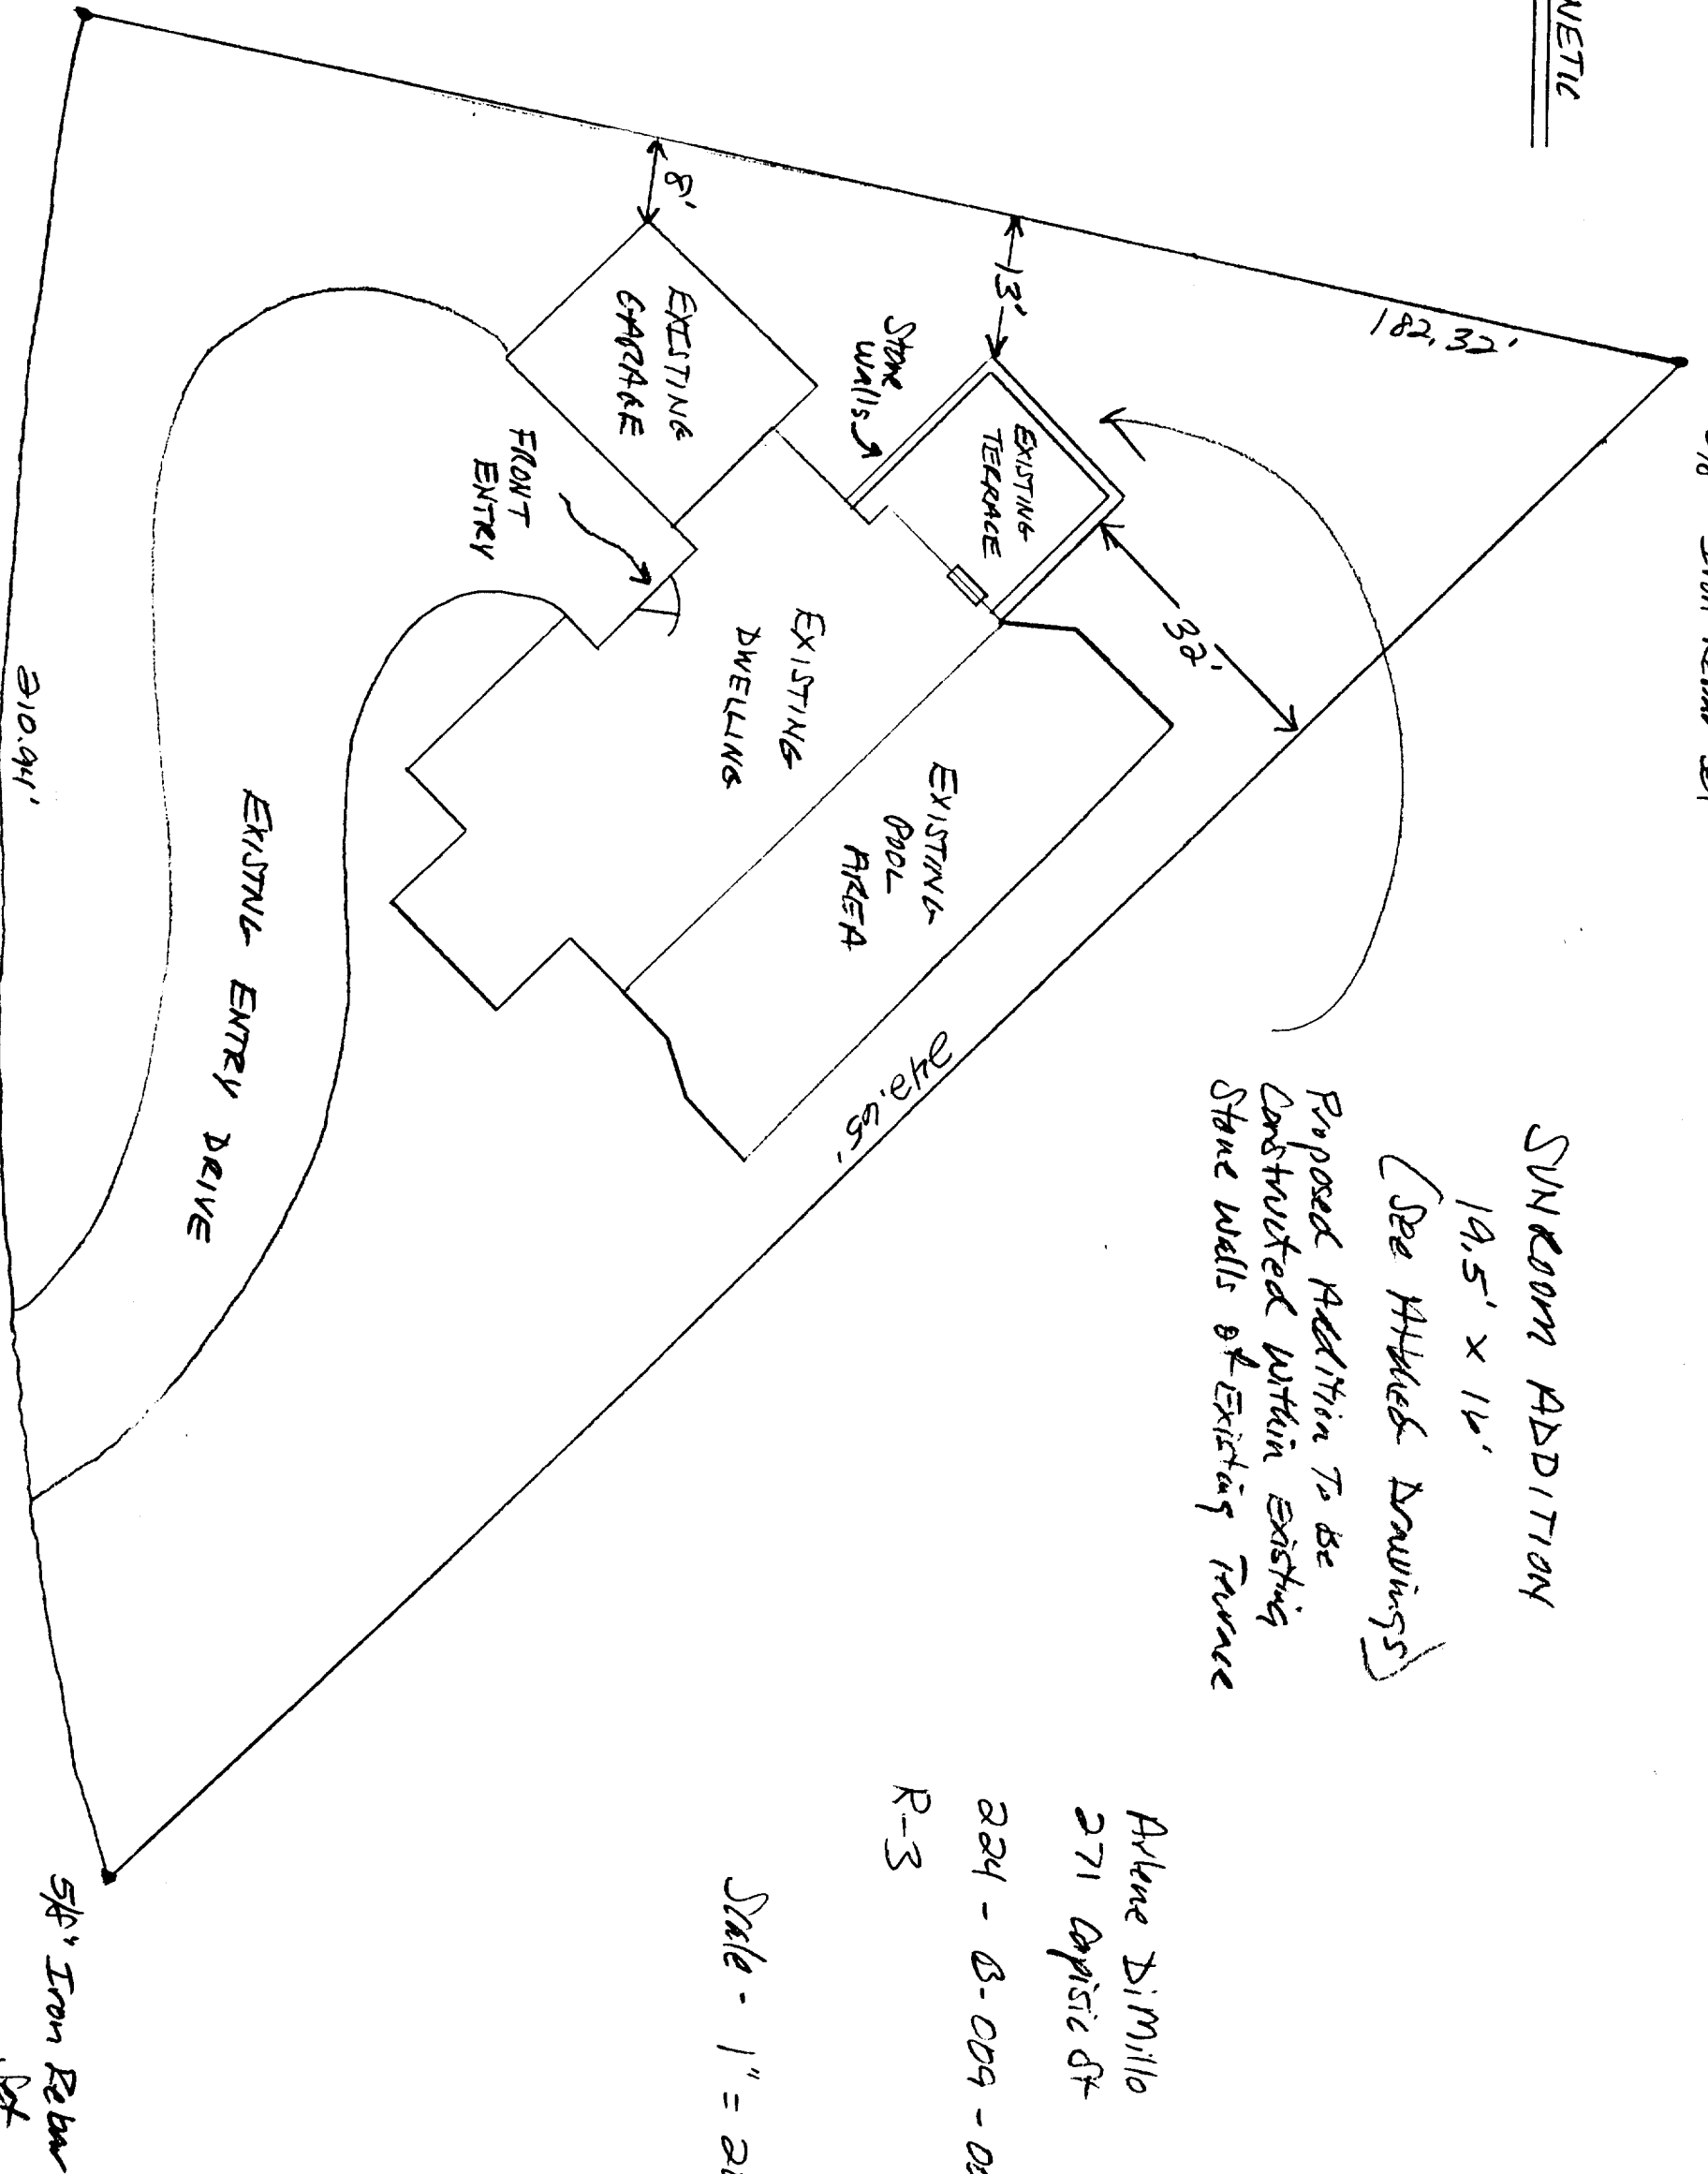 NETIC
182.32'
8'
13'
Stone
Walls
EXISTING
TERRACE
EXISTING
GARAGE
FRONT
ENTRY
32'
EXISTING
DWELLING
EXISTING
POOL
AREA
242.65'
EXISTING ENTRY DRIVE
210.94'
SUNROOM ADDITION
19.5' x 16'
(See Attached Drawings)
Proposed Addition To Be
Constructed Within Existing
Stone Walls of Existing Terrace
Arlene DiMillo
271 Capisic St
224 - B-009 -
R-3
Scale - 1" = 2
5/8" Iron Rebar
Set